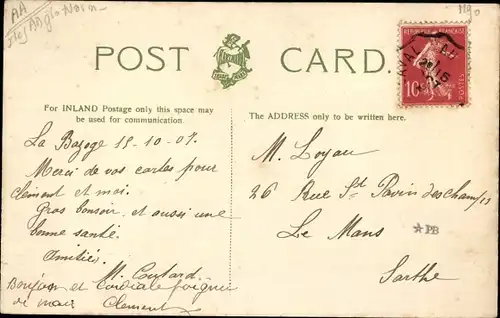 AA
Iles Anglo Norm
POST CARD.
RÉPUBLIQUE FRANÇAISE
10
POSTES
For INLAND Postage only this space may
be used for communication.
The ADDRESS only to be written here.
La Bazoge 15-10-07.
Merci de vos cartes pour
Clément et moi.
Gros bonsoir et aussi une
bonne santé.
Amitiés.
M. Coutard.
Bonjour et Cordiale poignée
de main Clement
M. Loyau
26 Rue St Pavin des champs
Le Mans
Sarthe
*PB